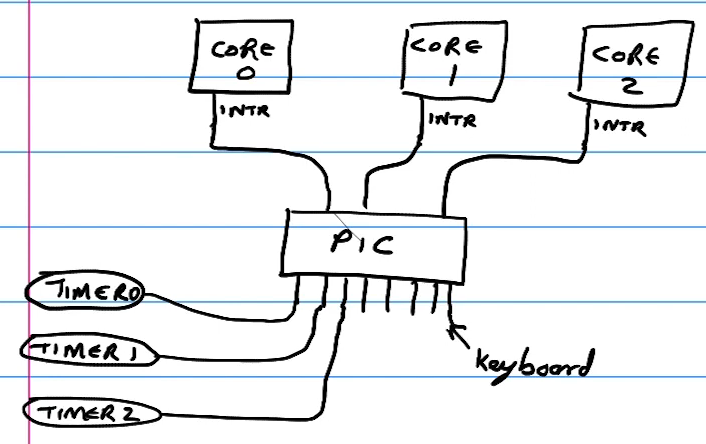 CORE
0
CORE
1
CORE
2
INTR
INTR
INTR
PIC
TIMER0
TIMER 1
TIMER 2
Keyboard